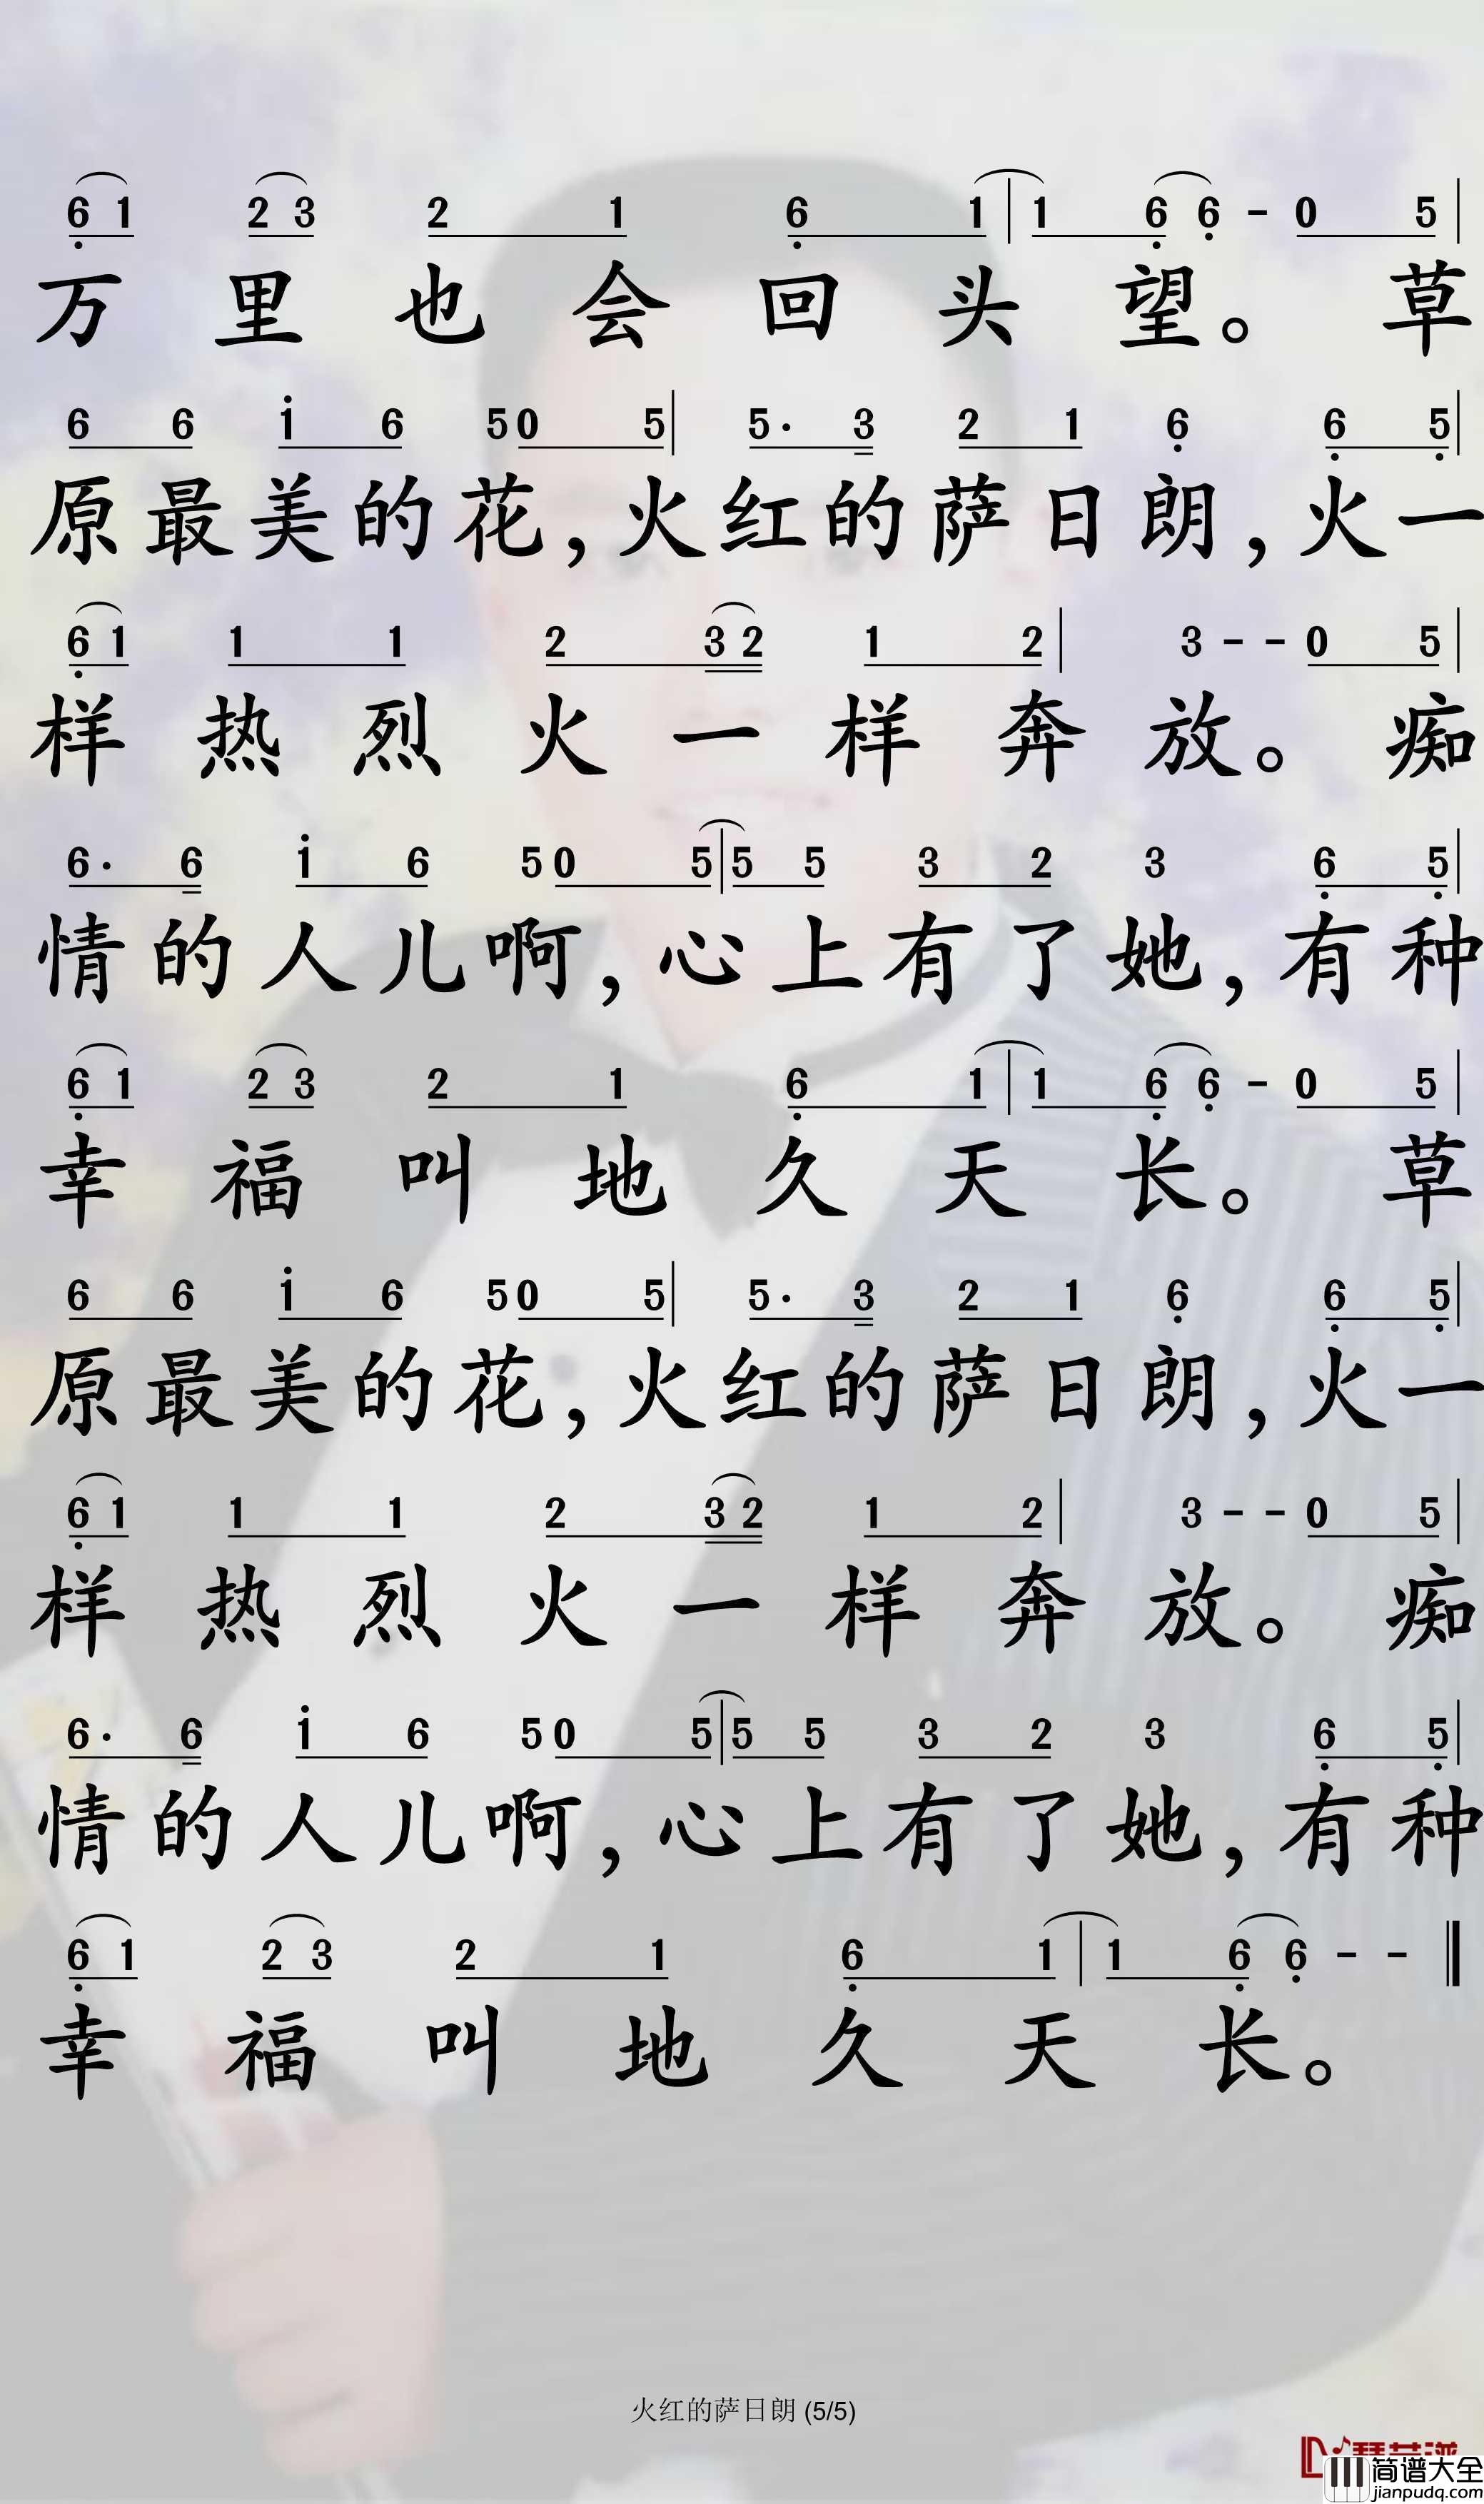 6 1 2 3 2 1 6 1 | 1 6 6 - 0 5 |
万里也会回头望。草
6 6 i 6 5 0 5 | 5· 3 2 1 6 6 5 |
原最美的花,火红的萨日朗,火一
6 1 1 1 2 3 2 1 2 | 3 - - 0 5 |
样热烈火一样奔放。痴
6· 6 i 6 5 0 5 | 5 5 3 2 3 6 5 |
情的人儿啊,心上有了她,有种
6 1 2 3 2 1 6 1 | 1 6 6 - 0 5 |
幸福叫地久天长。草
6 6 i 6 5 0 5 | 5· 3 2 1 6 6 5 |
原最美的花,火红的萨日朗,火一
6 1 1 1 2 3 2 1 2 | 3 - - 0 5 |
样热烈火一样奔放。痴
6· 6 i 6 5 0 5 | 5 5 3 2 3 6 5 |
情的人儿啊,心上有了她,有种
6 1 2 3 2 1 6 1 | 1 6 6 - - ‖
幸福叫地久天长。
火红的萨日朗 (5/5)
简谱大全
jianpudq.com